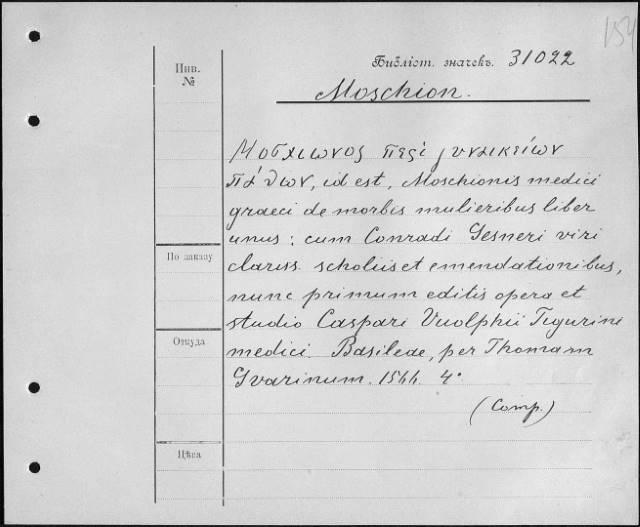 154
Библіот. значекъ. 31022
Инв.
№
Moschion.
Μοσχιωνος περὶ γυναικείων
πάθων, id est, Moschionis medici
graeci de morbis mulieribus liber
unus: cum Conradi Gesneri viri
clariss. scholiis et emendationibus,
nunc primum editis opera et
studio Caspari Vuolphii Tigurini
medici. Basileae, per Thomam
Gvarinum. 1566. 4°
(Comp.)
По заказу
Откуда
Цѣна